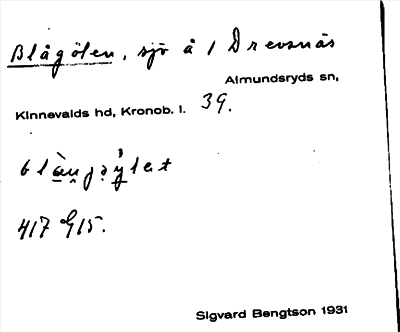 Blågölen, sjö å 1 Drevsnäs
Almundsryds sn,
Kinnevalds hd, Kronob. l. 39.
417
Sigvard Bengtson 1931